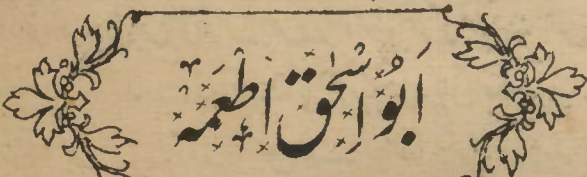 اَبُو اِسْحٰق اَطْعَمَه